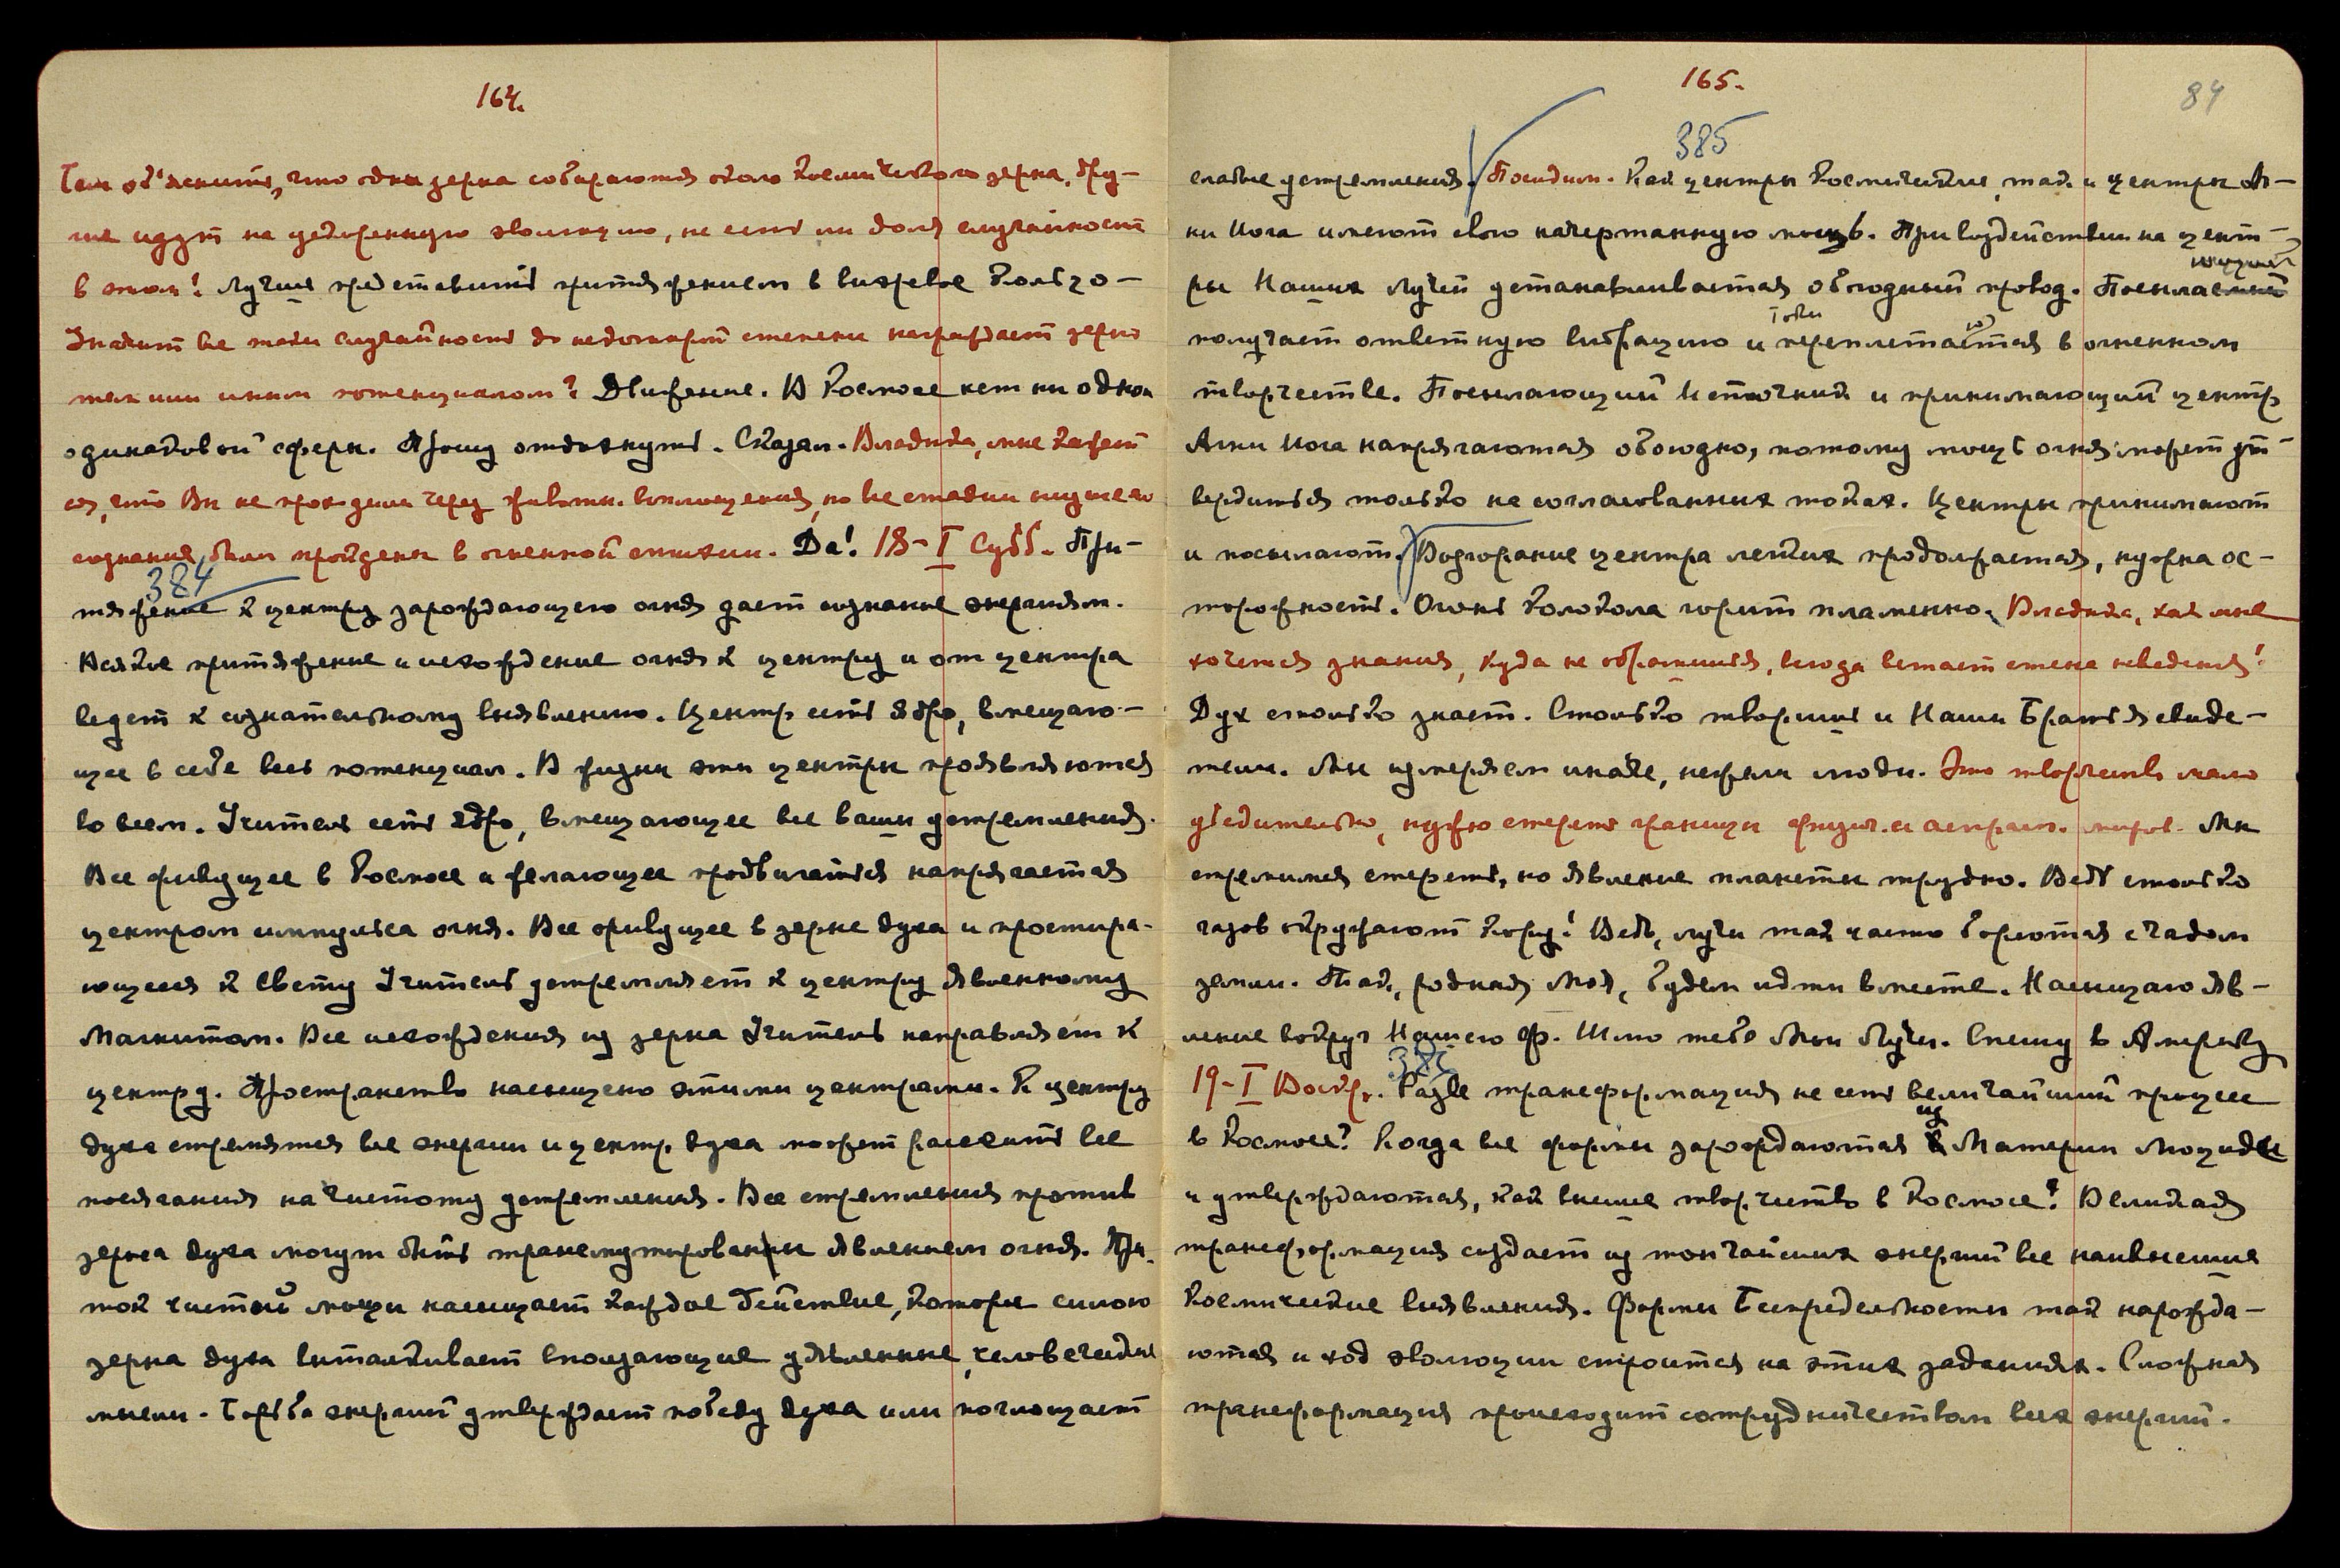 164.
Чем об'яснить, что одни зерна собираются около космического зерна, дру-
гие идут на уединенную эволюцию, не есть ли доля случайности
в этом? Лучше представить притяжением в вихревое кольцо –
Значит все таки случайность до некоторой степени награждает зерно
тем или иным потенциалом? Движение. В Космосе нет ни одной
одинаковой сферы. Прошу отдохнуть. Сказал. Владыка, мне кажет
ся, что Вы не проходили через животн. воплощения, но все стадии низшего
сознания были пройдены в огненной стихии. Да! 18–I Субб. При-
384
тяжение к центру зарождающего огня дает сознание энергиям.
Всякое притяжение и исхождение огня к центру и от центра
ведет к сознательному выявлению. Центр есть ядро, вмещаю-
щее в себе весь потенциал. В жизни эти центры проявляются
во всем. Учитель есть ядро, вмещающее все ваши устремления.
Все живущее в Космосе и желающее продвигаться напрягается
центром импульса огня. Все живущее в зерне духа и простира-
ющееся к Свету Учитель устремляет к центру явленному
Магнитом. Все исхождения из зерна Учитель направляет к
центру. Пространство насыщено этими центрами. К центру
духа стремятся все энергии и центр духа может рассеять все
посягания на чистоту устремления. Все стремления против
зерна духа могут быть трансмутированы явлением огня. При-
ток чистой мощи насыщает каждое действие, которое силою
зерна духа выталкивает сползающие уявленные человеческие
мысли. Борьба энергий утверждает победу духа или поглощает
165.
84
385
слабые устремления. Посидим. Как центры Космические, так и центры Аг-
ни Йога имеют свою начертанную мощь. При воздействии на цент-
ры Наших Лучей устанавливается обоюдный провод. Посылающий
получает ответную вибрацию и токи переплетаются в огненном
творчестве. Посылающий Источник и принимающий центр
Агни Йога напрягаются обоюдно, потому мощь огня может ут-
вердиться только на согласованных токах. Центры принимают
и посылают. Возгорание центра легких продолжается, нужна ос-
торожность. Огонь колокола горит пламенно. Владыка, как мне
хочется знания, куда не обратишься, всюда встает стена неведения!
Дух столько знает. Столько творишь и Наши Братья свиде-
тели. Мы измеряем иначе, нежели люди. Это творчество мало
убедительно, нужно стереть границы физич. и астрал. миров. Мы
стремимся стереть, но явление планеты трудно. Ведь столько
газов окружают кору! Ведь, лучи так часто борются с чадом
земли. Так, родная Моя, будем идти вместе. Насыщаю яв-
ление вокруг Нашего Ф. Шлю тебе Мои Лучи. Спешу в Америку
386
19–I Воскр. Разве трансформация не есть величайший процесс
в Космосе? Когда все формы зарождаются из Материи Люциды
и утверждаются, как высшее творчество в Космосе? Великая
трансформация создает из тончайших энергий все наивысшие
космические выявления. Формы Беспредельности так нарожда-
ются и ход эволюции строится на этих заданиях. Сложная
трансформация происходит сотрудничеством всех энергий.